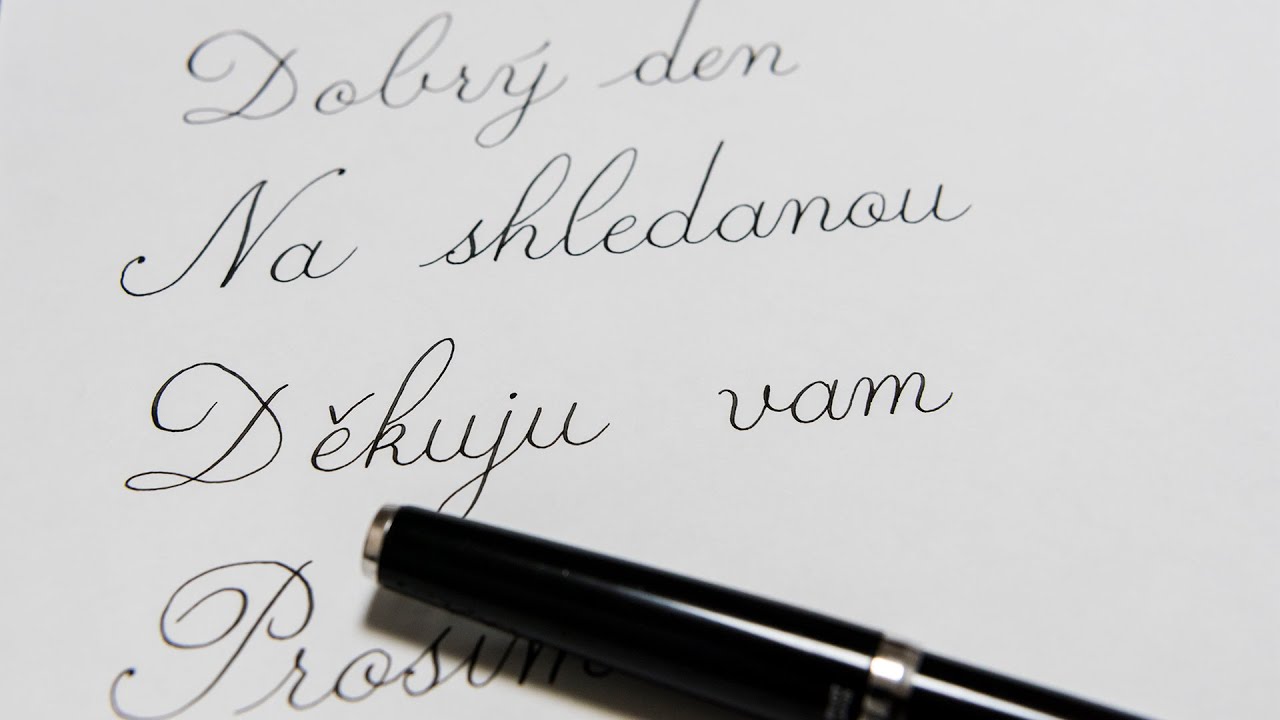 Dobrý den
Na shledanou
Děkuju vam
Prosím